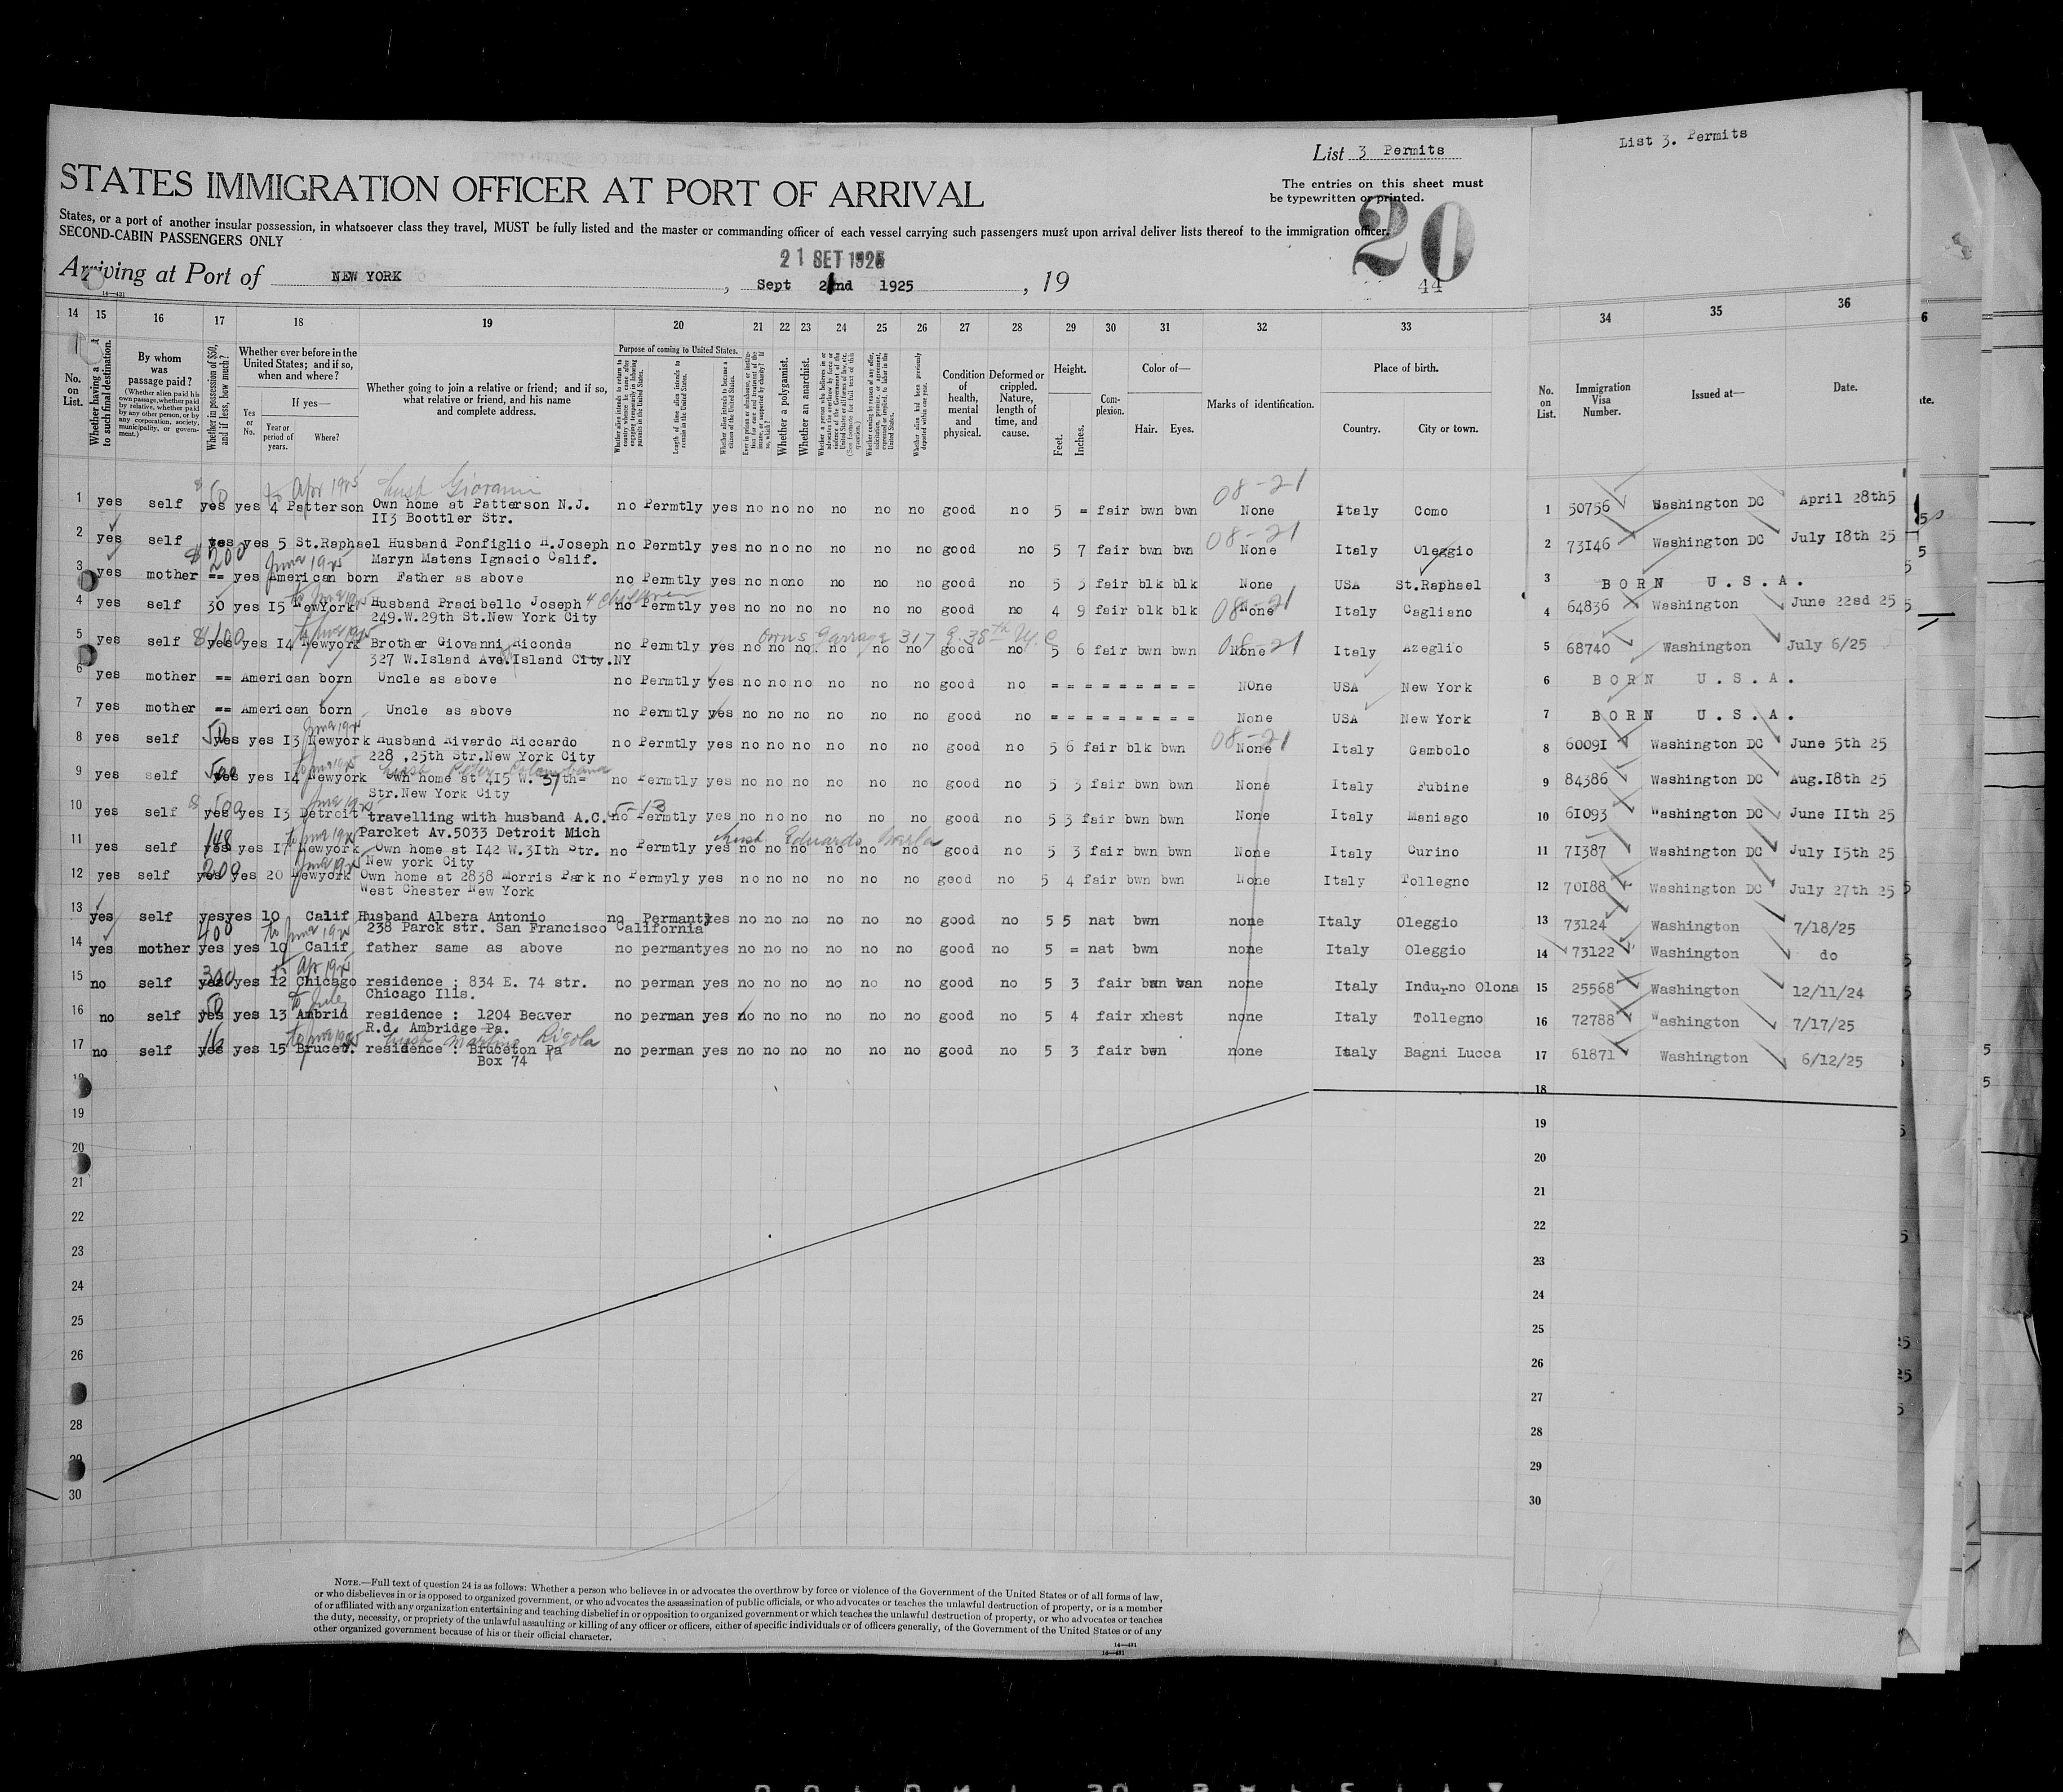 List 3 Permits
List 3. Permits
STATES IMMIGRATION OFFICER AT PORT OF ARRIVAL
The entries on this sheet must
be typewritten or printed.
States, or a port of another insular possession, in whatsoever class they travel, MUST be fully listed and the master or commanding officer of each vessel carrying such passengers must upon arrival deliver lists thereof to the immigration officer.
SECOND-CABIN PASSENGERS ONLY
20
44
21 SET 1925
Arriving at Port of NEW YORK, Sept 2nd 1925, 19
14—431
14 15 16 17 18 19 20 21 22 23 24 25 26 27 28 29 30 31 32 33 34 35 36
No. on List.
Whether having a to such final destination.
By whom was passage paid?
(Whether alien paid his own passage, whether paid by relative, whether paid by any other person, or by any corporation, society, municipality, or government.)
Whether in possession of $50, and if less, how much?
Whether ever before in the United States; and if so, when and where?
Yes or No.
If yes—
Year or period of years.
Where?
Whether going to join a relative or friend; and if so, what relative or friend, and his name and complete address.
Purpose of coming to United States.
Length of time alien intends to remain in the United States.
Whether alien intends to become a citizen of the United States.
Whether a polygamist.
Whether an anarchist.
Whether alien had been previously deported within one year.
Condition of health, mental and physical.
Deformed or crippled. Nature, length of time, and cause.
Height.
Feet. Inches.
Complexion.
Color of—
Hair. Eyes.
Marks of identification.
Place of birth.
Country. City or town.
No. on List.
Immigration Visa Number.
Issued at—
Date.
to Apr 1925 husb Giovanni 08-21
1 yes self yes yes 4 Patterson Own home at Patterson N.J. no Permtly yes no no no no no no good no 5 = fair bwn bwn None Italy Como 1 50756 Washington DC April 28th5
II3 Boottler Str.
08-21
2 yes self yes yes 5 St.Raphael Husband Ponfiglio H.Joseph no Permtly yes no no no no no no good no 5 7 fair bwn bwn None Italy Oleggio 2 73146 Washington DC July I8th 25
$ 200 June 1925 Maryn Matens Ignacio Calif.
3 yes mother == yes American born Father as above no Permtly yes no no no no no no good no 5 3 fair blk blk None USA St.Raphael 3 BORN U.S.A.
4 yes self 30 yes I5 NewYork Husband Pracibello Joseph 4 children no Permtly yes no no no no no no good no 4 9 fair blk blk None 08-21 Italy Cagliano 4 64836 Washington June 22sd 25
249.W.29th St.New York City
owns Garrage 317 E. 38th N.Y.C
5 yes self $100 yes yes I4 Newyork Brother Giovanni Riconda no Permtly yes no no no no no no good no 5 6 fair bwn bwn None 08-21 Italy Azeglio 5 68740 Washington July 6/25
327 W.Island Ave.Island City.NY
6 yes mother == American born Uncle as above no Permtly yes no no no no no no good no = = = = = = = = = NOne USA New York 6 BORN U.S.A.
7 yes mother == American born Uncle as above no Permtly yes no no no no no no good no = = = = = = = = = None USA New York 7 BORN U.S.A.
8 yes self 50 yes yes I3 Newyork Husband Rivardo Riccardo no Permtly yes no no no no no no good no 5 6 fair blk bwn None 08-21 Italy Gambolo 8 6009I Washington DC June 5th 25
228 ,25th Str.New York City
9 yes self 500 yes yes I4 Newyork Own home at 4I5 W. 37th= no Permtly yes no no no no no no good no 5 3 fair bwn bwn None Italy Fubine 9 84386 Washington DC Aug.I8th 25
Str.New York City
10 yes self $ 500 yes yes I3 Detroit travelling with husband A.C. 5-13 no Permtly yes no no no no no no good no 5 3 fair bwn bwn None Italy Maniago 10 6I093 Washington DC June IIth 25
Parcket Av.5033 Detroit Mich
husb Eduardo Barla
11 yes self 148 yes yes I7 Newyork Own home at I42 W.3Ith Str. no Permtly yes no no no no no no good no 5 3 fair bwn bwn None Italy Curino 11 7I387 Washington DC July I5th 25
New york City
12 yes self 200 yes yes 20 Newyork Own home at 2838 Morris Park no Permyly yes no no no no no no good no 5 4 fair bwn bwn None Italy Tollegno 12 70I88 Washington DC July 27th 25
West Chester New York
13 yes self yesyes 10 Calif Husband Albera Antonio no Permantyes no no no no no no good no 5 5 nat bwn none Italy Oleggio 13 73124 Washington 7/18/25
400 to June 1925 238 Parck str. San Francisco California
14 yes mother yes yes 10 Calif father same as above no permantyes no no no no no no good no 5 = nat bwn none Italy Oleggio 14 73122 Washington do
to Apr 1925
15 no self 300 yes yes 12 Chicago residence : 834 E. 74 str. no perman yes no no no no no no good no 5 3 fair bwn none Italy Induno Olona 15 25568 Washington 12/11/24
Chicago Ills.
16 no self 50 yes yes 13 Ambrid residence : 1204 Beaver no perman yes no no no no no no good no 5 4 fair xhest none Italy Tollegno 16 72788 Washington 7/17/25
R.d. Ambridge Pa.
husb Martino Rigola
17 no self 16 yes yes 15 Brucet. residence : Bruceton Pa no perman yes no no no no no no good no 5 3 fair bwn none Italy Bagni Lucca 17 61871 Washington 6/12/25
Box 74
18
19 19
20 20
21 21
22 22
23 23
24 24
25 25
26 26
27
28 28
29 29
30 30
NOTE.—Full text of question 24 is as follows: Whether a person who believes in or advocates the overthrow by force or violence of the Government of the United States or of all forms of law,
or who disbelieves in or is opposed to organized government, or who advocates the assassination of public officials, or who advocates or teaches the unlawful destruction of property, or is a member
of or affiliated with any organization entertaining and teaching disbelief in or opposition to organized government or which teaches the unlawful destruction of property, or who advocates or teaches
the duty, necessity, or propriety of the unlawful assaulting or killing of any officer or officers, either of specific individuals or of officers generally, of the Government of the United States or of any
other organized government because of his or their official character.
14—431
14—431